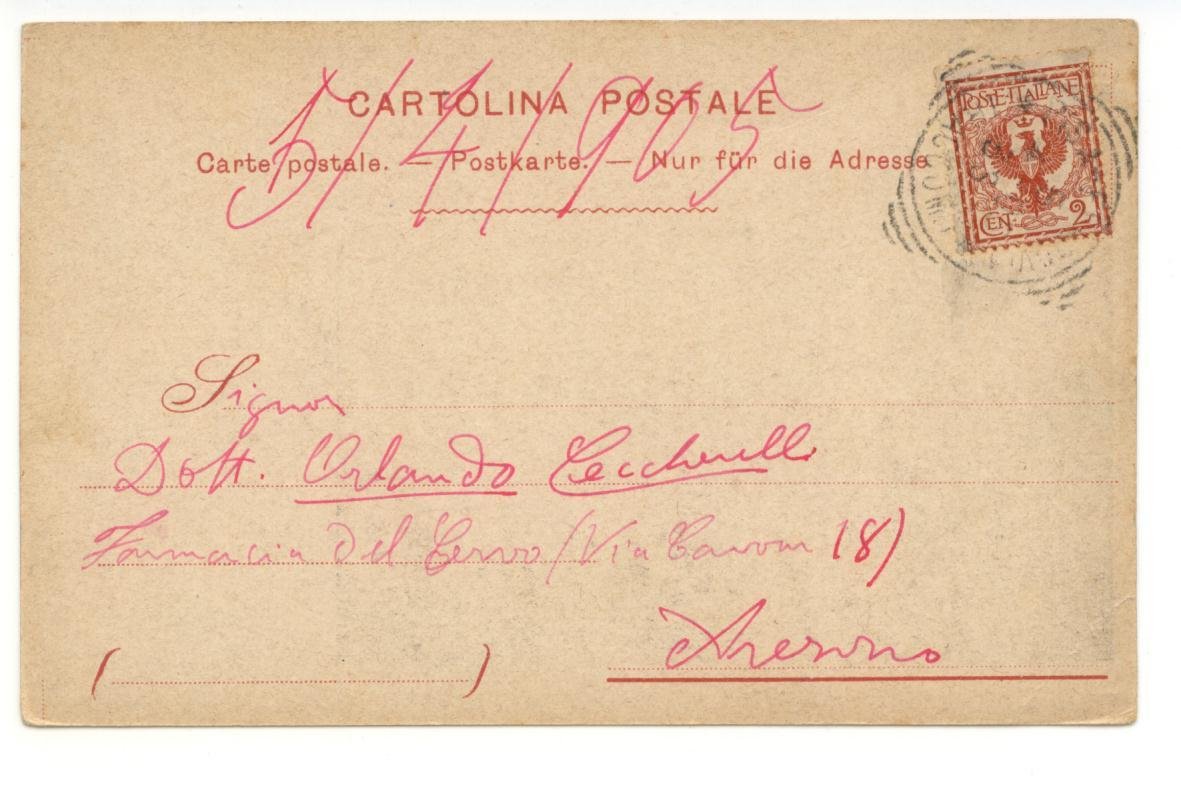 CARTOLINA POSTALE
5/4/905
Carte postale. — Postkarte. — Nur für die Adresse
POSTE·ITALIANE
CEN. 2
Signor
Dott. Orlando Ceccherelli
Farmacia del Cervo (Via Cavour 18)